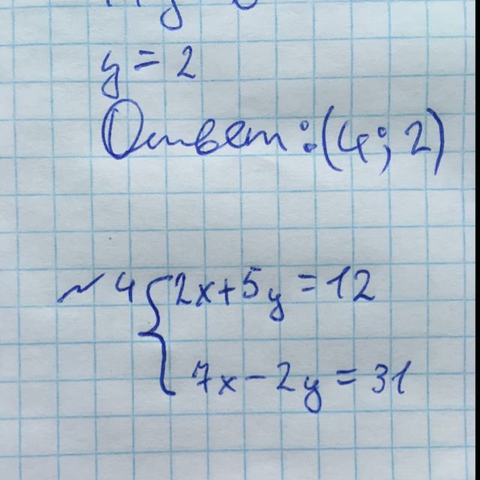 y = 2
Ответ: (4; 2)
~ 4 { 2x + 5y = 12
7x - 2y = 31